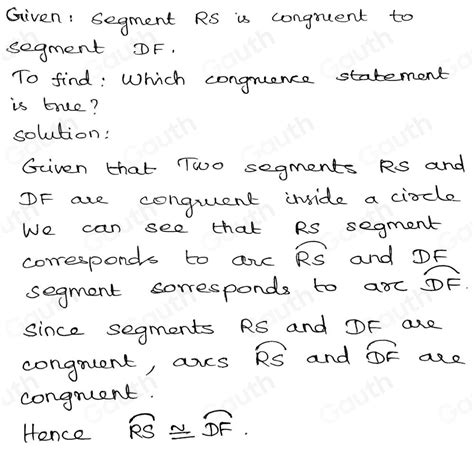 Given: Segment RS is congruent to
segment DF.
To find: Which congruence statement
is true?
solution:
Given that Two segments RS and
DF are congruent inside a circle
We can see that RS segment
corresponds to arc R͡S and DF
segment sorresponds to arc D͡F.
since segments RS and DF are
congruent, arcs R͡S and D͡F are
congruent.
Hence R͡S ≅ D͡F.